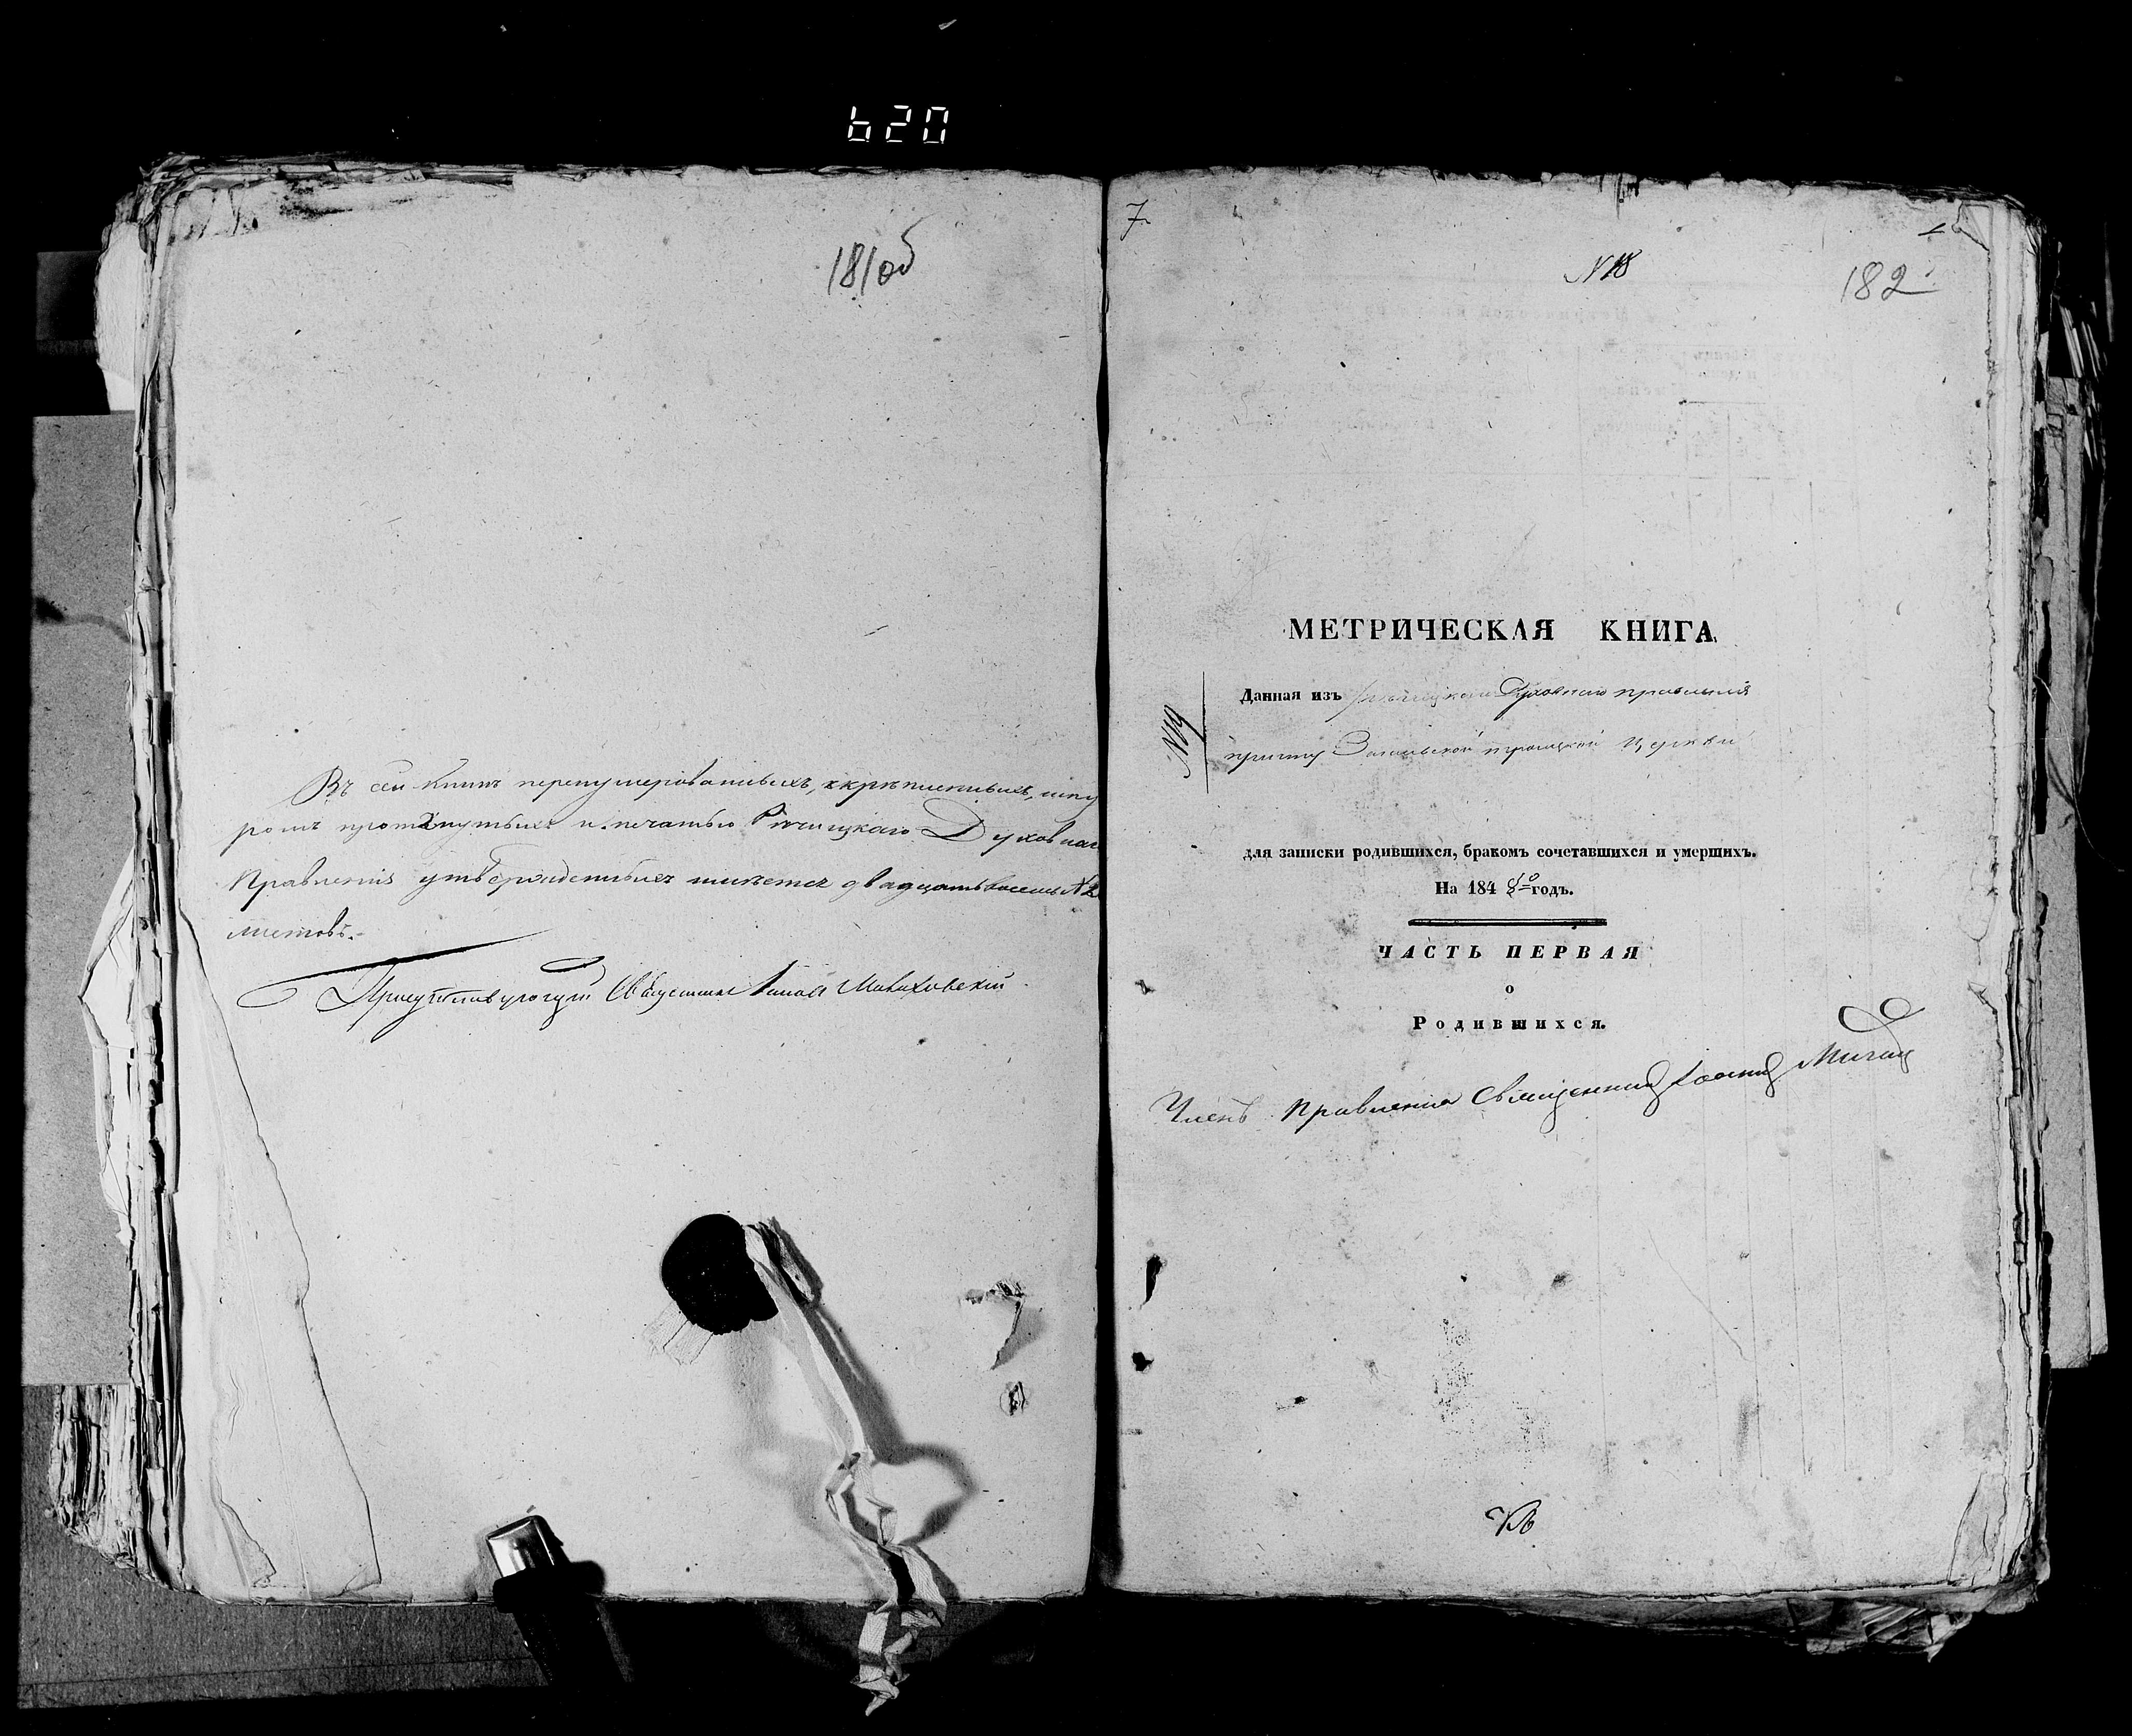 620
181об
Въ сей книгѣ перенумерованныхъ, скрѣпленныхъ, шну
ромъ протянутыхъ и печатью Рѣчицкаго Духовнаг
Правленія утвержденныхъ имѣется двадцать восемь
листовъ.
Присутствующій Священникъ Маляховскій
7
N 18
182
МЕТРИЧЕСКАЯ КНИГА,
Данная изъ Рѣчицкаго Духовнаго правленія
N 19
причту троицкой церкви
для записки родившихся, бракомъ сочетавшихся и умершихъ.
На 184 8 годъ.
ЧАСТЬ ПЕРВАЯ
о
Родившихся.
Членъ Правленія Священникъ Іоаннъ